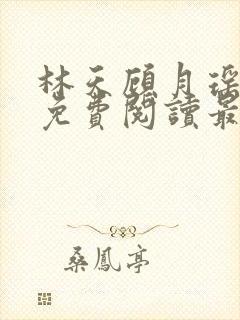 林天顾月瑶
免費閱讀最
桑鳳亭